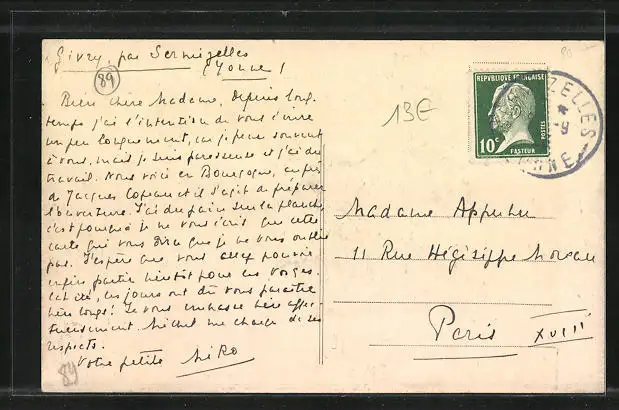 Givry, par Sermizelles
(Yonne)
89
Bien chère Madame, depuis long-
temps j'ai l'intention de vous écrire
un peu longuement, car je pense souvent
à vous, mais je suis paresseuse et j'ai du
travail. Nous voici en Bourgogne, auprès
de Jacques Copeau et il s'agit de préparer
l'ouverture. J'ai du pain sur la planche
c'est pourquoi je ne vous écris que cette
carte qui vous dira que je ne vous oublie
pas. J'espère que vous allez pouvoir
enfin partir bientôt pour les Vosges.
Cet été, les jours ont dû vous paraître
bien longs! Je vous embrasse bien affec-
tueusement. Michel me charge de ses
respects.
Votre petite Miko
89
13€
80
RÉPUBLIQUE FRANÇAISE
10c
POSTES
PASTEUR
ZELLES
9
NNE
Madame
11 Rue Hégésippe Moreau
Paris XVIII